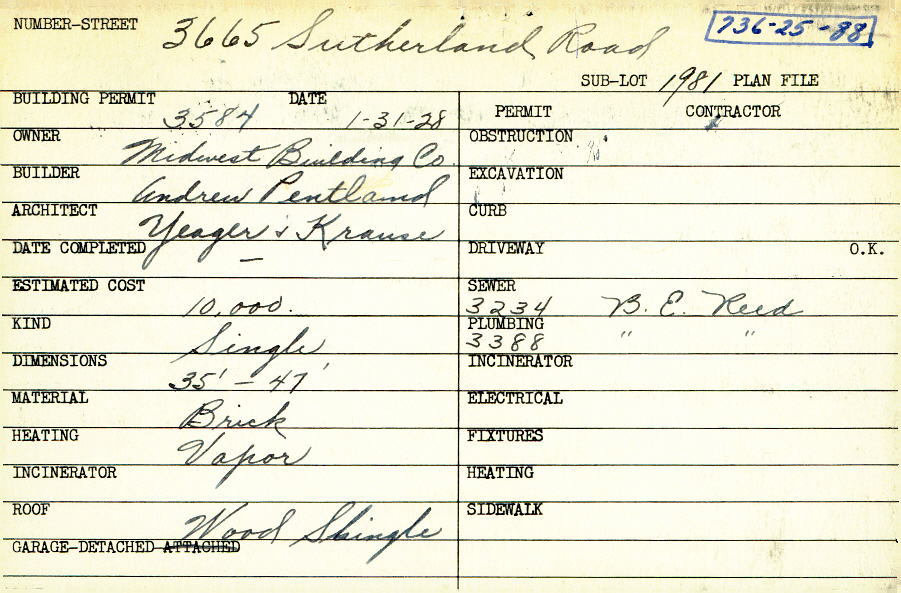 NUMBER-STREET 3665 Sutherland Road 736-25-88
SUB-LOT 1981 PLAN FILE
BUILDING PERMIT 3584 DATE 1-31-28
OWNER Midwest Building Co.
BUILDER Andrew Pentland
ARCHITECT Yeager & Krause
DATE COMPLETED —
ESTIMATED COST 10,000.
KIND Single
DIMENSIONS 35' - 47'
MATERIAL Brick
HEATING Vapor
INCINERATOR
ROOF Wood Shingle
GARAGE-DETACHED ATTACHED
PERMIT CONTRACTOR
OBSTRUCTION
EXCAVATION
CURB
DRIVEWAY O.K.
SEWER 3234 B. E. Reed
PLUMBING 3388 " "
INCINERATOR
ELECTRICAL
FIXTURES
HEATING
SIDEWALK